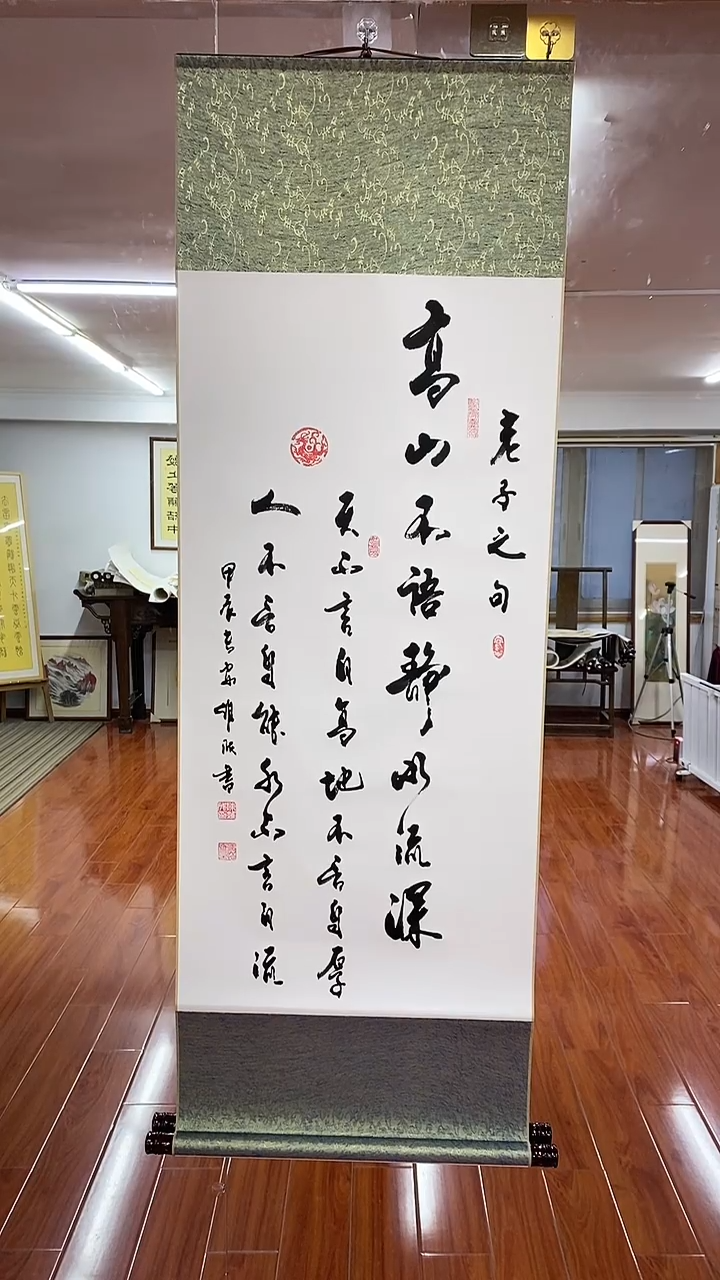 老子之句
高山不語靜水流深
天不言自高地不言自厚
人不言自能水不言自流
甲辰書